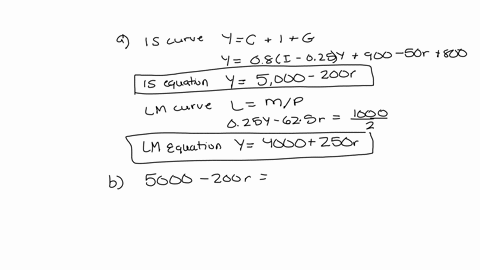 a) IS curve Y = C + I + G
Y = 0.8(I - 0.25)Y + 900 - 50r + 800
IS equation Y = 5,000 - 200r
LM curve L = M/P
0.25Y - 62.5r = 1000/2
LM Equation Y = 4000 + 250r
b) 5000 - 200r =